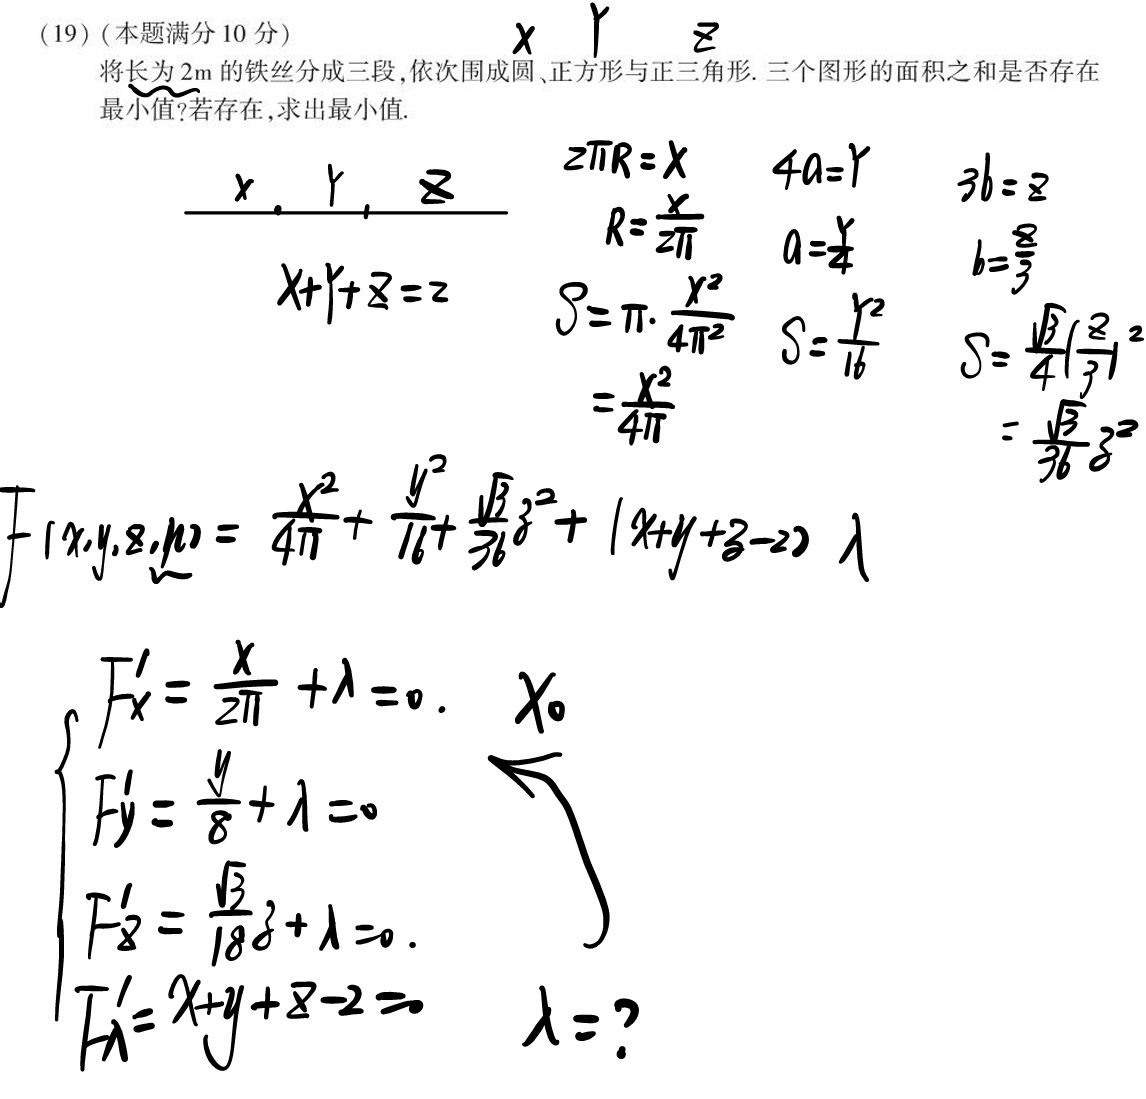 x Y z
(19) (本题满分 10 分)
将长为 2m 的铁丝分成三段,依次围成圆、正方形与正三角形. 三个图形的面积之和是否存在
最小值?若存在,求出最小值.
x, Y, z
x+Y+z=2
2πR=x
R=x/2π
S=π·x²/4π²
=x²/4π
4a=Y
a=Y/4
S=Y²/16
3b=z
b=z/3
S=√3/4(z/3)²
=√3/36 z²
F(x,y,z,μ)=x²/4π+y²/16+√3/36 z²+(x+y+z-2)λ
F'x=x/2π+λ=0.
F'y=y/8+λ=0
F'z=√3/18 z+λ=0.
F'λ=x+y+z-2=0
x₀
λ=?